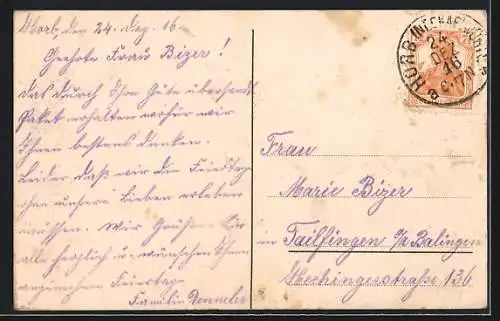 Horb, den 24. Dez. 16
Geehrte Frau Bizer!
Das durch Ihre Güte übersandte
Paket erhalten wofür wir
Ihnen bestens danken.
Leider daß wir die Feiertage
ohne unsere Lieben erleben
müssen. Wir Grüßen Sie
alle herzlich u. wünschen Ihnen
angenehme Feiertage
Familie
HORB (NECKAR)
24
DEZ
16
Frau
Marie Bizer
in Tailfingen O/A Balingen
Hechingerstraße 136